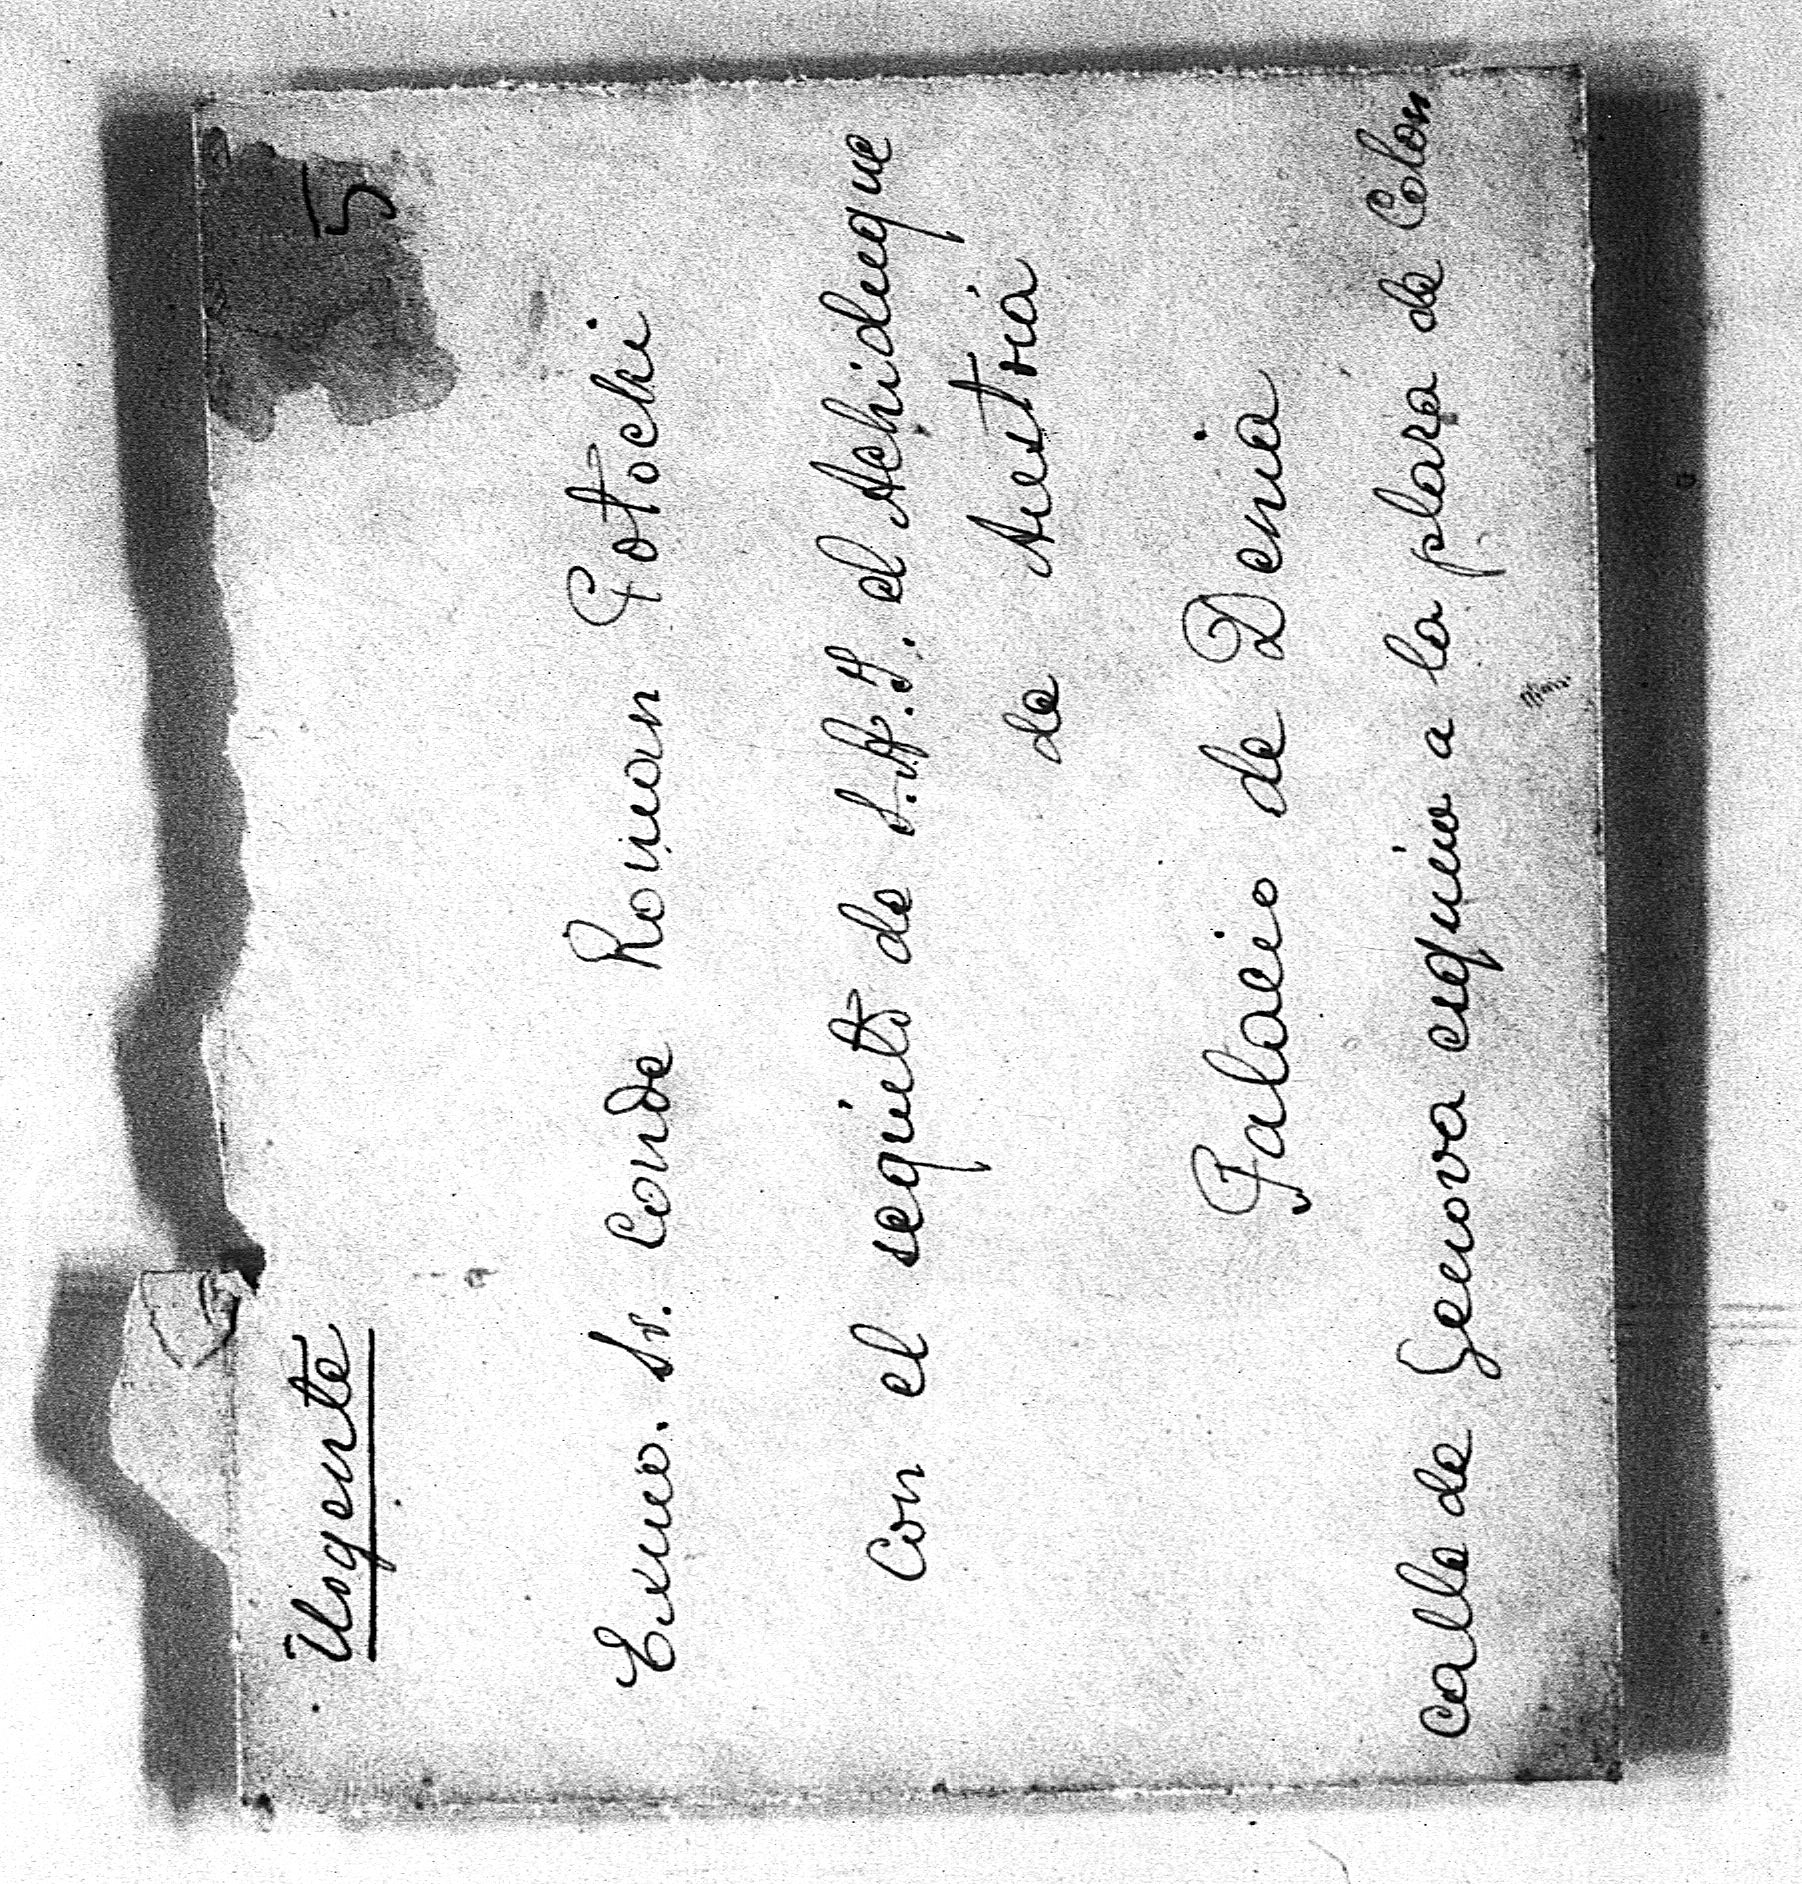 Urgente
5
Exmo. Sr. Conde Roman Potocki
Con el sequito de S.A.I. el Achiduque
de Austria
Palacio de Denia
calle de Genova esquina a la plaza de Colon